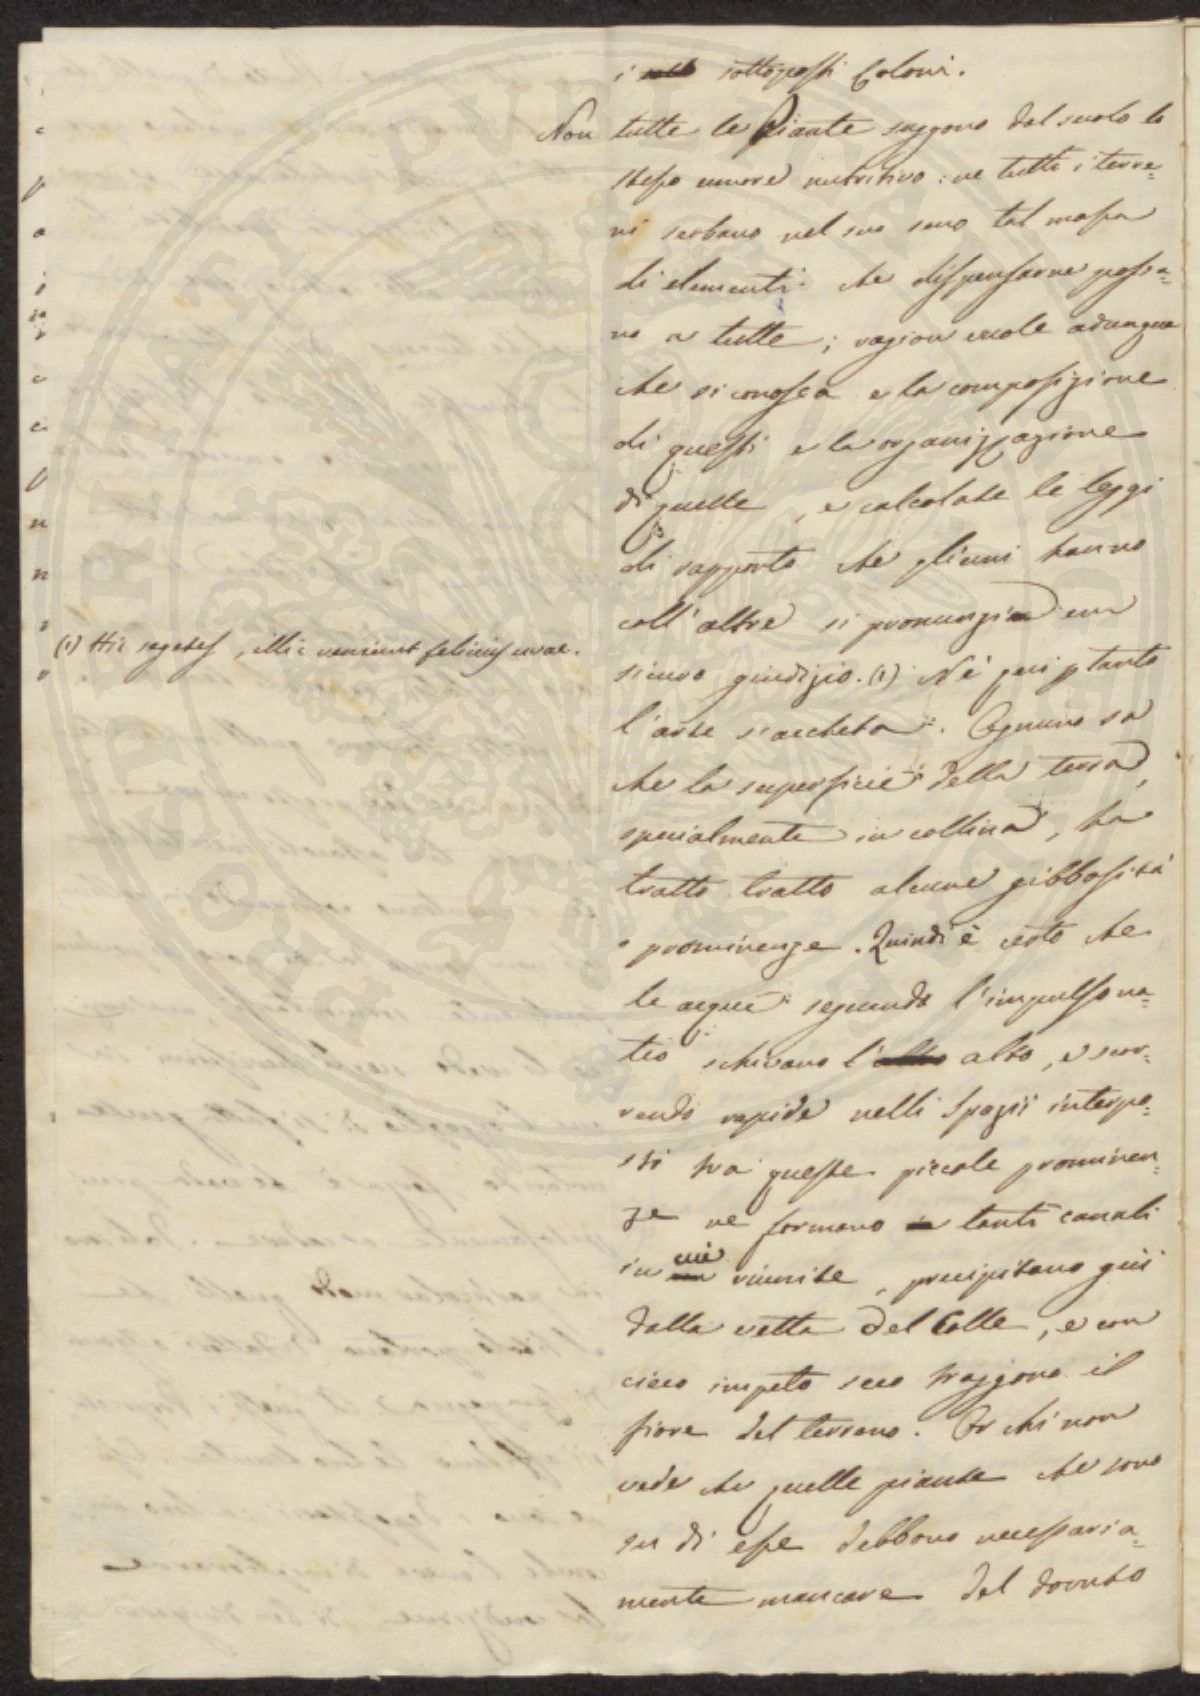 i sottoposti Coloni.
Non tutte le Piante suggono dal suolo lo
stesso umore nutritivo: ne tutti i terre=
ni serbano nel suo seno tal massa
di elementi che dispensarne possa=
no a tutte; ragion vuole adunque
che si conosca e la composizione
di questi e la organizzazione
di quelle, e calcolate le leggi
di rapporto che gli uni hanno
coll'altre si pronunzi un
sicuro giudizio. (1) Nè qui ptanto
l'arte s'accheta. Ognuno sa
che la superficie della terra,
specialmente in collina, ha
tratto tratto alcune gibbosità
o prominenze. Quindi è certo che
le acque seguendo l'impulso na=
tio schivano l' alto, e scor=
rendo rapide nelli spazii interpo=
sti tra queste piccole prominen=
ze ne formano tanti canali
in cui riunite, precipitano giù
dalla vetta del Colle, e con
cieco impeto seco traggono il
fiore del terreno. Or chi non
vede che quelle piante che sono
su di esse debbono necessaria=
mente mancare del dovuto
(1) Hic segetes, illic veniunt felicius uvae.
PROSPERITATI PVBLICAE AVGENDAE